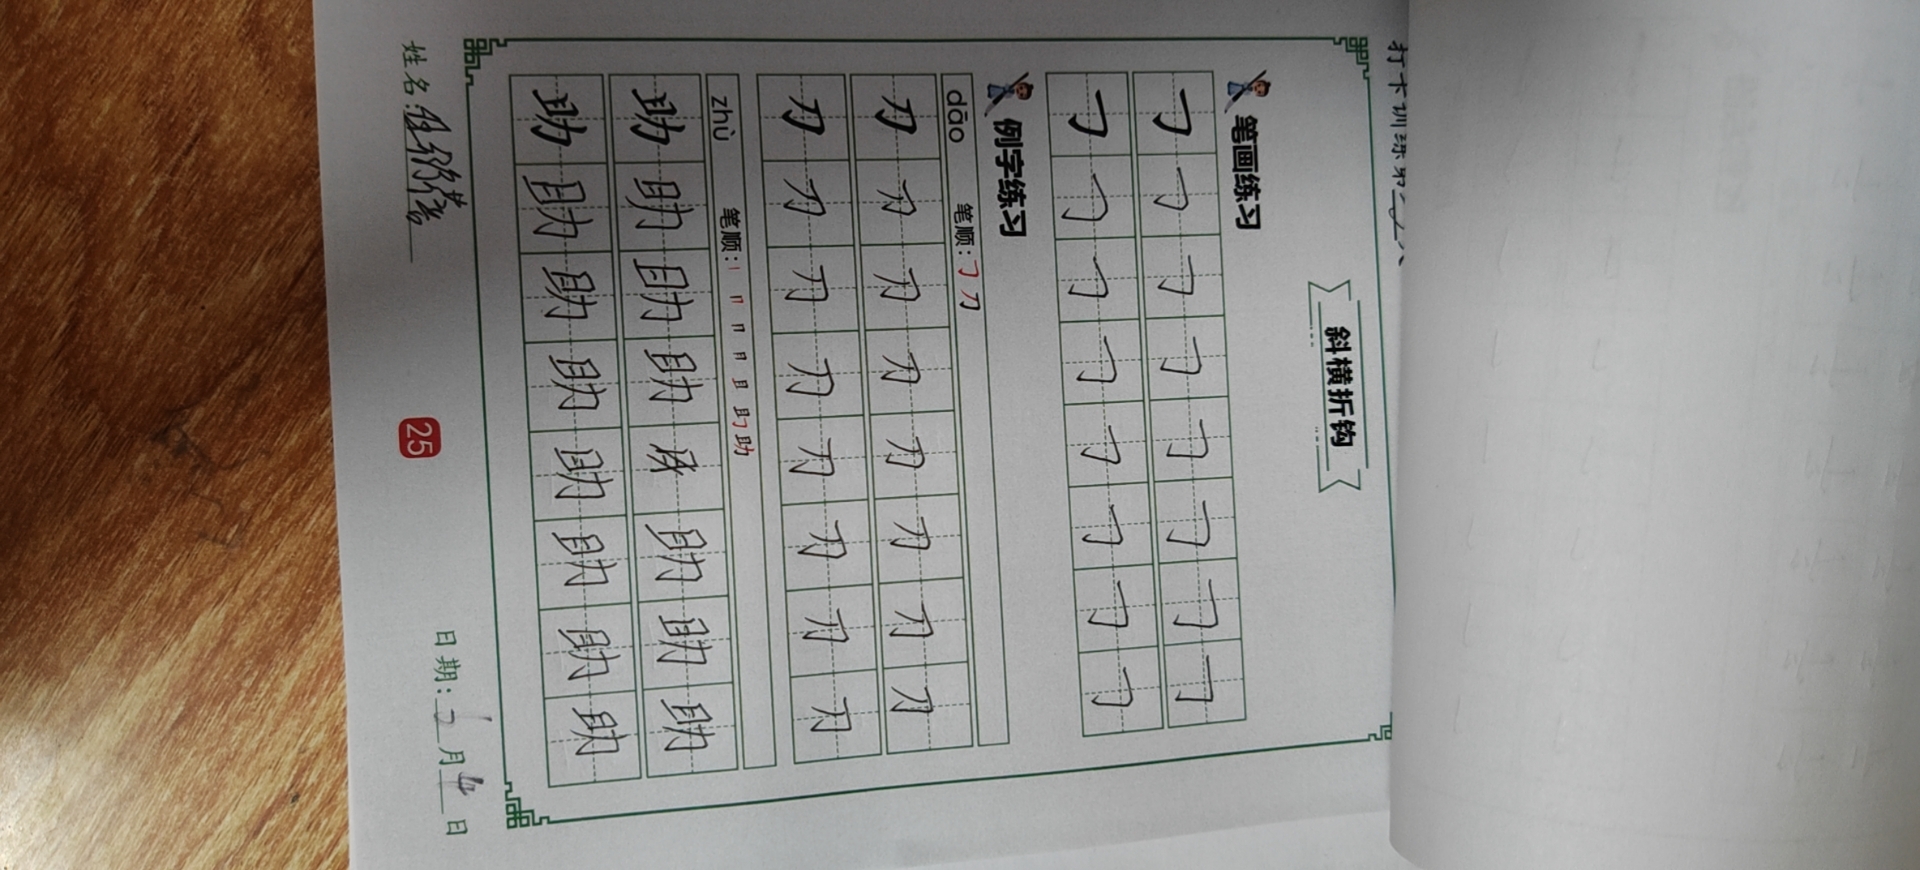 打卡训练第
斜横折钩
笔画练习
㇆ ㇆ ㇆ ㇆ ㇆ ㇆ ㇆ ㇆
㇆ ㇆ ㇆ ㇆ ㇆ ㇆ ㇆ ㇆
例字练习
dāo 笔顺: ㇆ 刀
刀 刀 刀 刀 刀 刀 刀 刀
刀 刀 刀 刀 刀 刀 刀 刀
zhù 笔顺: 丨 冂 月 月 且 助
助 助 助 助 助 助 助
助 助 助 助 助 助 助 助
姓名: 25 日期: 月 4 日